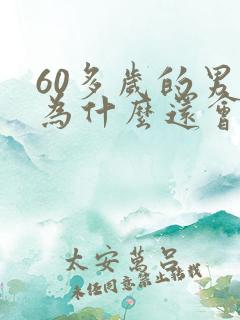 60多歲的男
為什麼還會
太安萬呂
未經同意禁止轉載